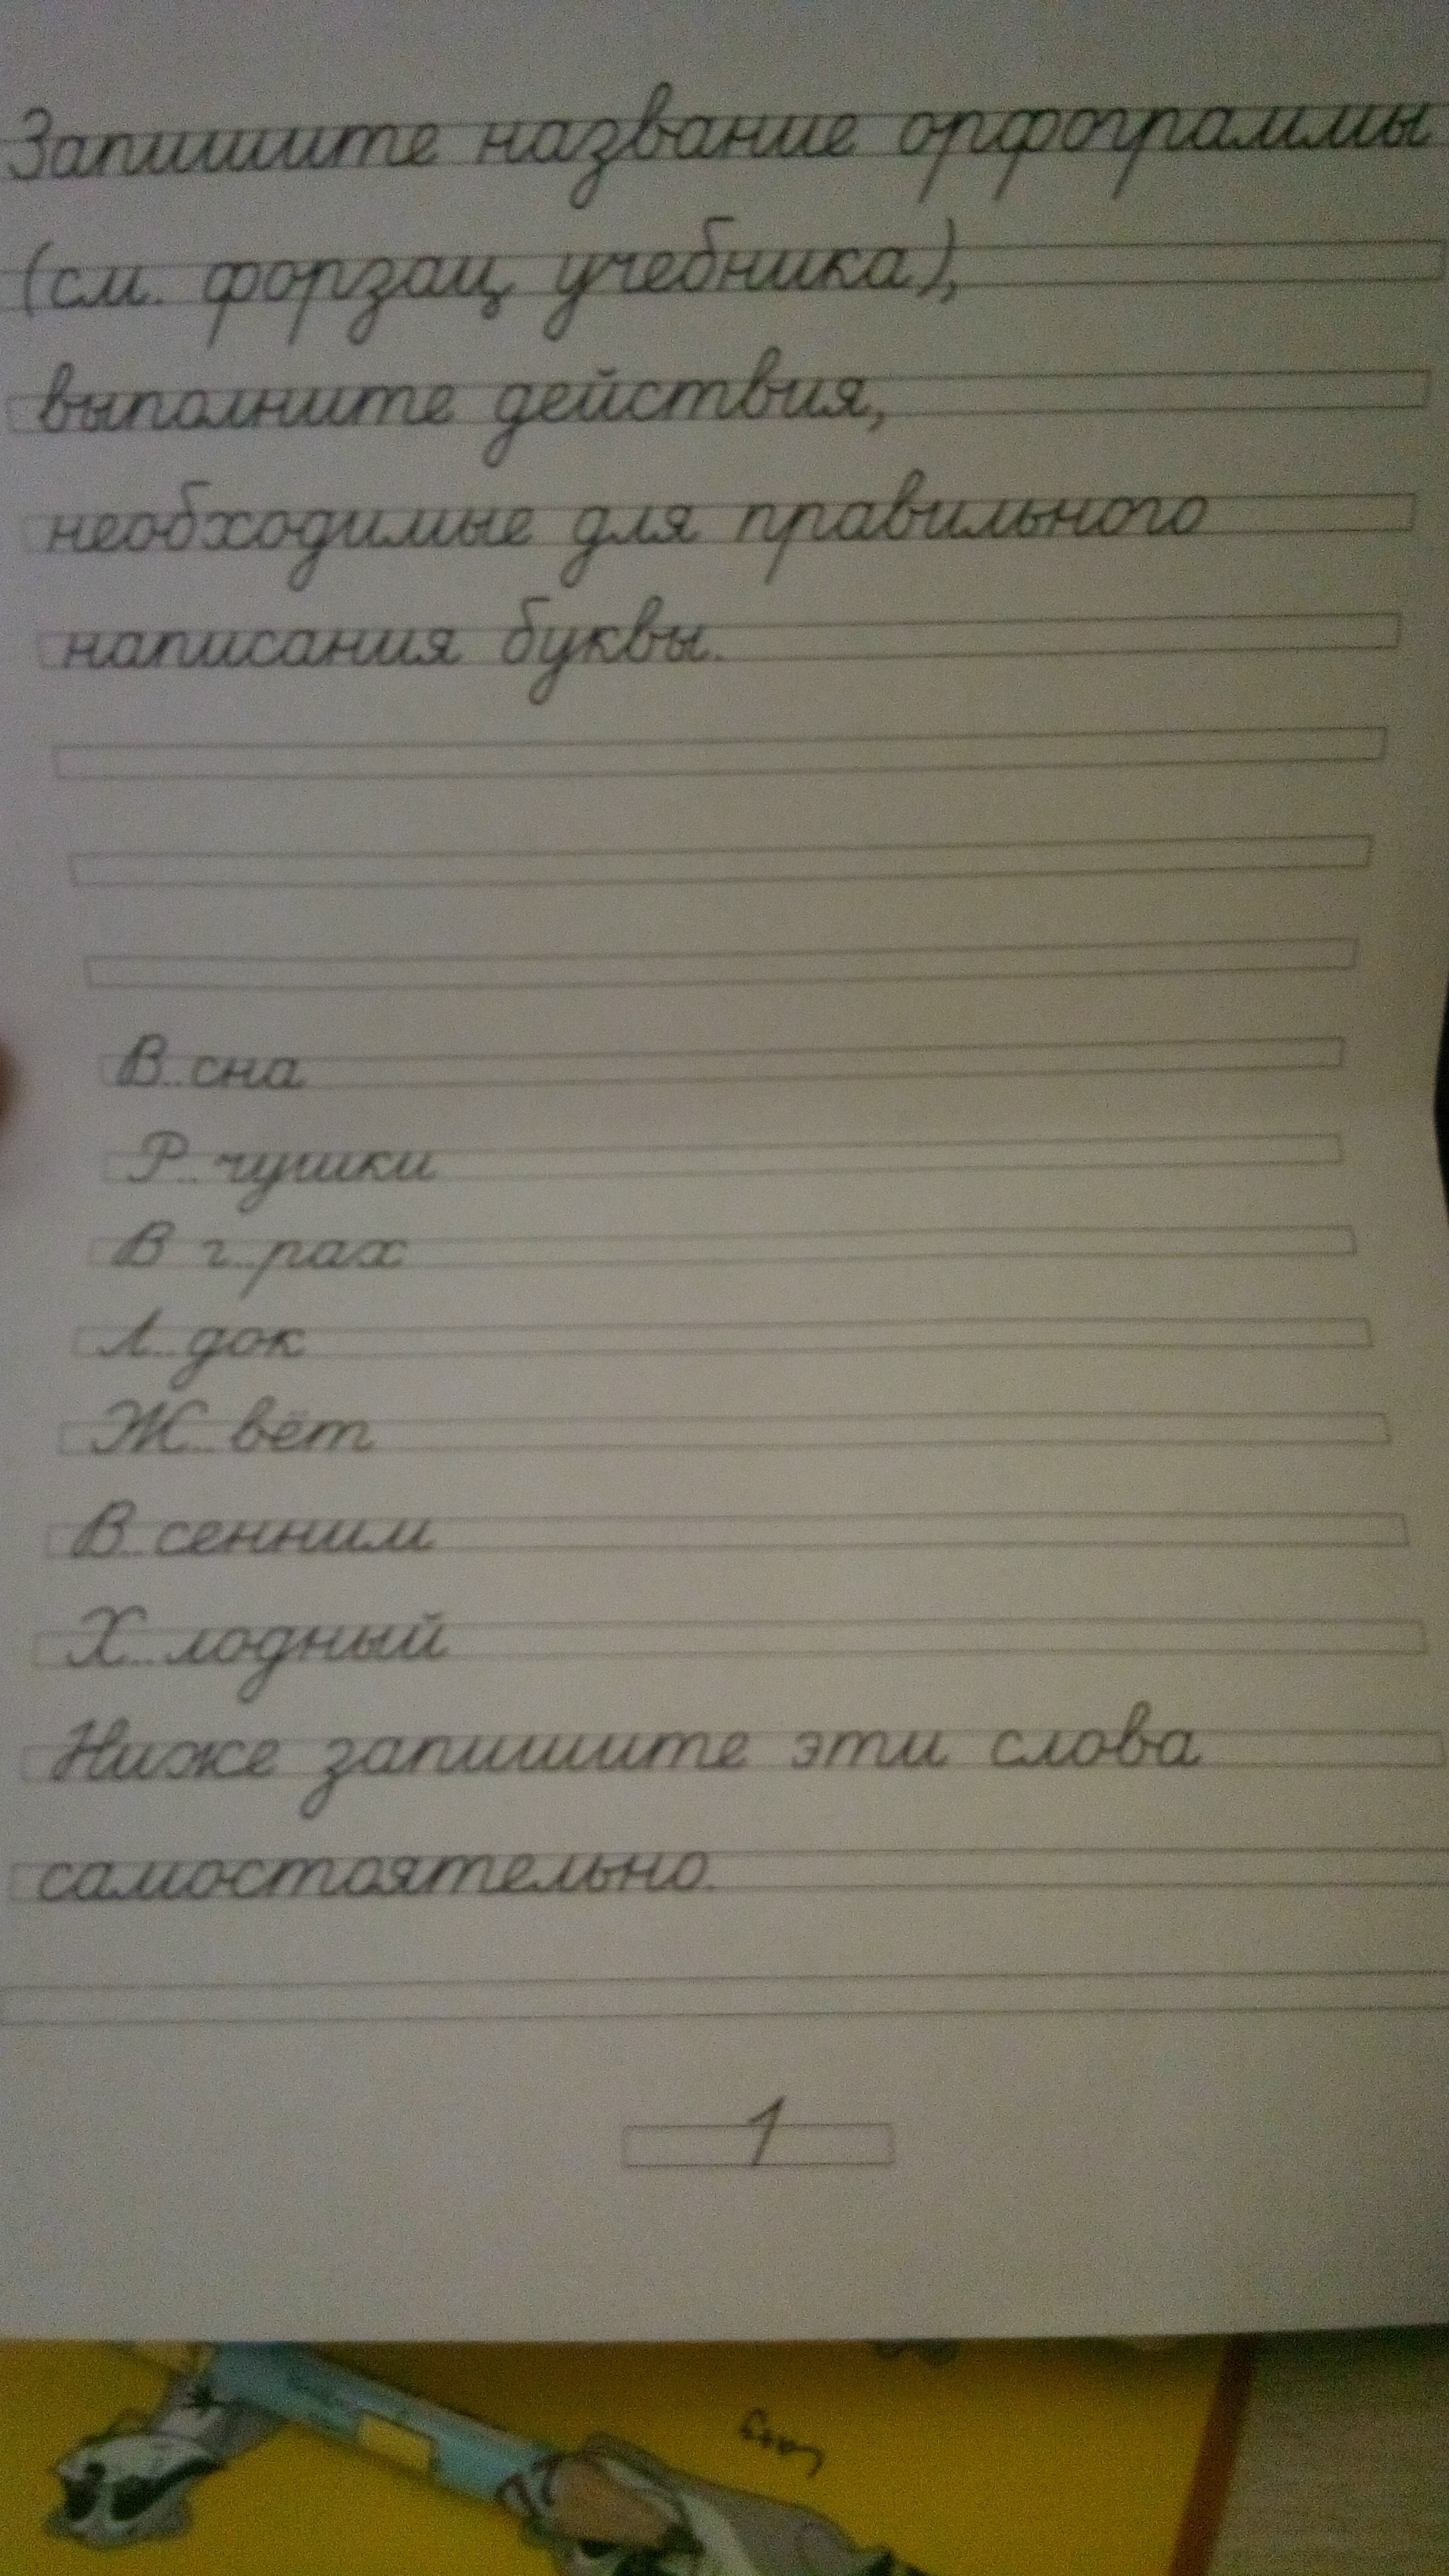 Запишите название орфограммы
(см. форзац учебника),
выполните действия,
необходимые для правильного
написания буквы.
В..сна
Р..чушки
В г..рах
Л..док
Ж..вёт
В..сенним
Х..лодный
Ниже запишите эти слова
самостоятельно.
1